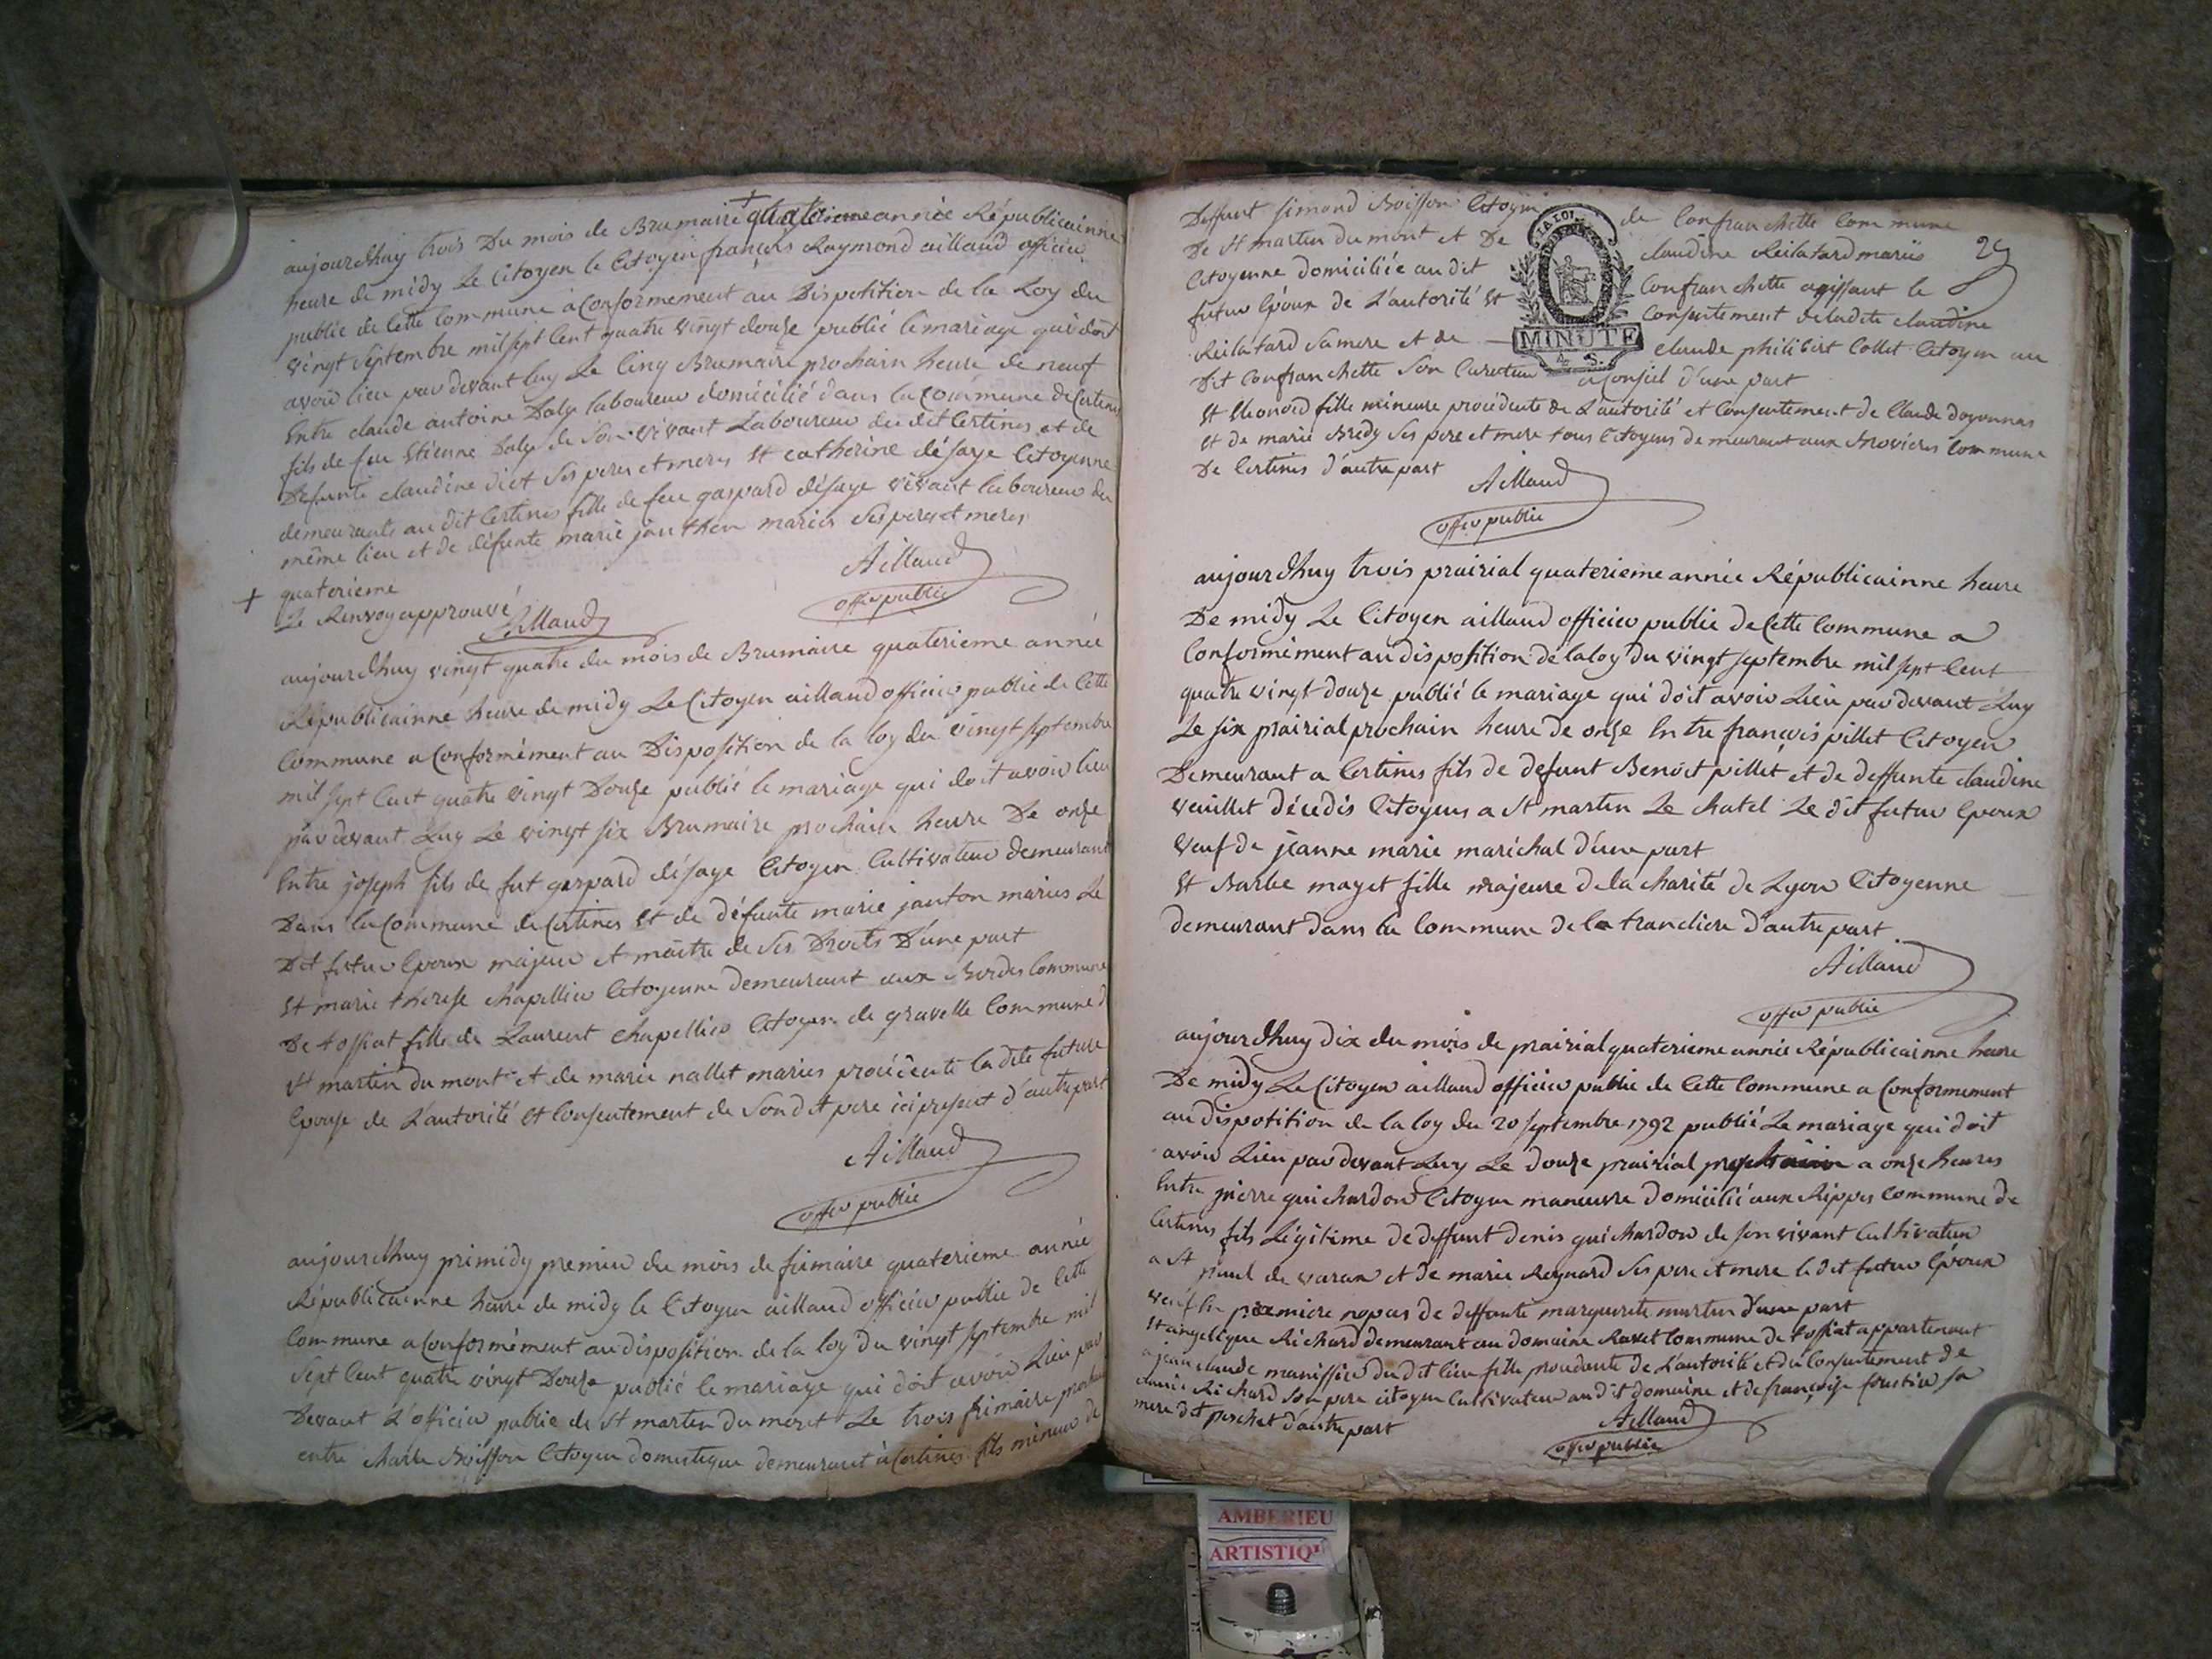 aujourdhuy trois Du mois de Brumaire + quaterieme année Républicainne
heure de midy Le Citoyen le Citoyen françois Raymond aillaud officier
public de Cette Commune a Conformement au Dispotition de la Loy du
vingt septembre mil sept Cent quatre vingt douze publié le mariage qui doit
avoir lieu par devant luy Le Cinq Brumaire prochain heure de neuf
Entre claude antoine laboureur domicilié dans la Commune de Certines
fils de feu Etienne de Son vivant Laboureur du dit Certines et de
Defunte claudine diet Ses peres et meres Et catherine désaye Citoyenne
demeurante au dit Certines fille de feu gaspard désaye vivant laboureur du
même lieu et de défunte marie janthon mariés Ses peres et meres
Aillaud
offer public
+ quaterieme
Le Renvoy approuvé
Aillaud
aujourdhuy vingt quatre du mois de Brumaire quaterieme année
Républicainne heure de midy Le Citoyen aillaud officier public de Cette
Commune a Conformément au Disposition de la loy du vingt septembre
mil sept Cent quatre vingt Douze publié le mariage qui doit avoir lieu
par devant Luy Le vingt six Brumaire prochain heure De onze
Entre joseph fils de fut gaspard désaye Citoyen Cultivateur demeurant
Dans la Commune de Certines Et de défunte marie janton mariés Le
Dit futur Epoux majeur et maitre de Ses Droits D'une part
Et marie therese chapellier Citoyenne demeurant aux Bordes Commune
De tossiat fille de Laurent chapellier Citoyen de gravelle Commune d
St martin du mont et de marie nallet mariés procédente la dite future
Epouse de L'autorité Et Consentement de Son dit pere ici present d'autre part
Aillaud
offer public
aujourdhuy primidy premier du mois de frimaire quaterieme année
Républicainne heure de midy le Citoyen aillaud officier public de Cette
Commune a Conformément au disposition de la loy du vingt septembre mil
Sept Cent quatre vingt Douze publié le mariage qui doit avoir Lieu par
Devant L'officier public de St martin du mont Le trois frimaire prochain
entre Charle Boisson Citoyen domestique demeurant à Certines fils mineur de
Deffunt simond Boisson Citoyen de Confranchette Commune
De St martin du mont et De claudine Reilatard mariés
29
Citoyenne domiciliée au dit Confranchette agissant le
futur Epoux de L'autorité Et Consentement de ladite claudine
Reilatard Sa mere et de claude philibert Collet Citoyen au
Dit Confranchette Son Curateur a Conseil d'une part
LA LOI
MINUTE
4. S.
Et Eleonord fille mineure procédente de L'autorité et Consentement de Claude doyonnas
Et de marie Bredy Ses pere et mere tous Citoyens demeurant aux Brovieres Commune
De Certines d'autre part
Aillaud
offer public
aujourdhuy trois prairial quaterieme année Républicainne heure
De midy Le Citoyen aillaud officier public de Cette Commune a
Conformément au disposition de la loy du vingt septembre mil sept Cent
quatre vingt douze publié le mariage qui doit avoir Lieu par devant Luy
Le six prairial prochain heure de onze Entre françois pillet Citoyen
Demeurant a Certines fils de defunt Benoit pillet et de deffunte claudine
veuillet décédés Citoyens a St martin Le chatel Le dit futur Epoux
veuf de jeanne marie maréchal d'une part
Et Barbe mayet fille majeure de la charité de Lyon Citoyenne
demeurant dans la Commune de la tranclière d'autre part
Aillaud
offer public
aujourdhuy dix du mois de prairial quaterieme année Républicainne heure
De midy Le Citoyen aillaud officier public de Cette Commune a Conformement
au dispotition de la loy du 20 septembre 1792 publié Le mariage qui doit
avoir Lieu par devant Luy Le douze prairial prochain a onze heures
Entre pierre guichardon Citoyen maneuvre domicilié aux Rippes Commune de
Certines fils Légitime de deffunt denis guichardon de son vivant Cultivateur
a St paul de varax et de marie Reynard Ses pere et mere le dit futur Epoux
veuf En premiere nopas de deffunte marguerite martin d'une part
Et angelique Richard demeurant au domaine Ravet Commune de tossiat appartenant
a jean claude manissier du dit lieu fille procedente de L'autorité et du Consentement de
Richard Son pere citoyen Cultivateur au dit domaine et de françoise sa
mere dit perchet d'autre part
Aillaud
offer public
AMBERIEU
ARTISTIQ